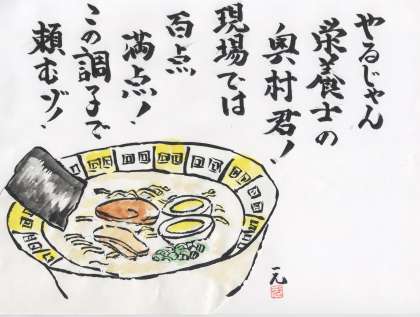 やるじゃん
栄養士の
奥村君!
現場では
百点
満点!
この調子で
頼むゾ!
元